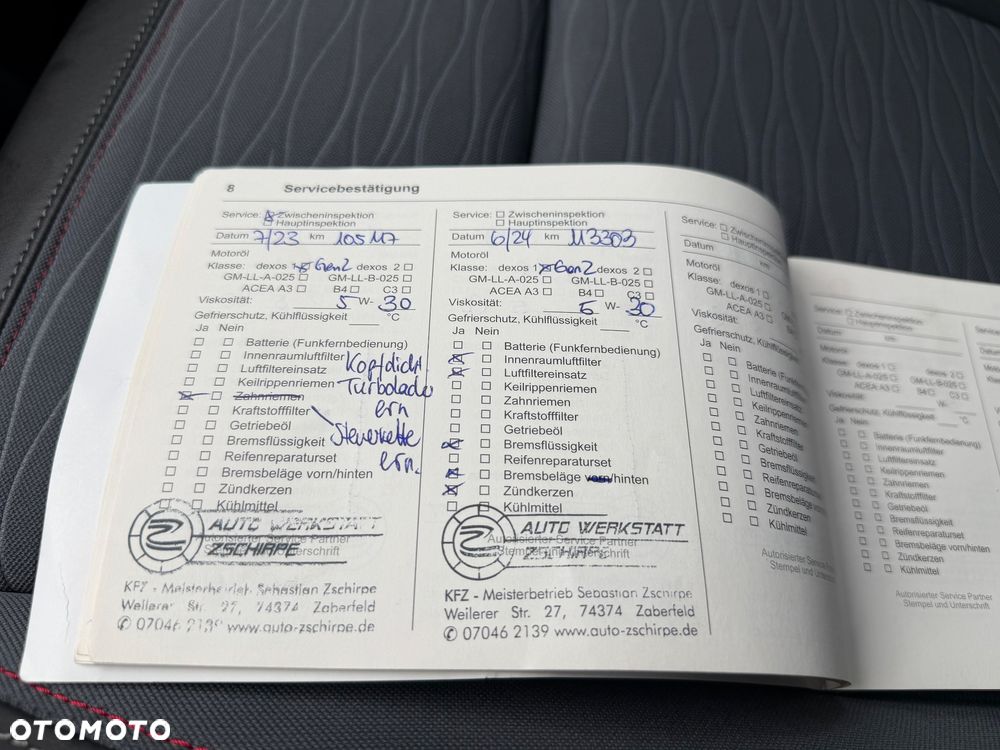 8 Servicebestätigung
Service: Zwischeninspektion
Hauptinspektion
Datum 7/23 km 105117
Motoröl
Klasse: dexos 1 Gen2 dexos 2
GM-LL-A-025 GM-LL-B-025
ACEA A3 B4 C3
Viskosität: 5 W- 30
Gefrierschutz, Kühlflüssigkeit °C
Ja Nein
Batterie (Funkfernbedienung)
Innenraumluftfilter
Luftfiltereinsatz
Keilrippenriemen
Zahnriemen
Kraftstofffilter
Getriebeöl
Bremsflüssigkeit
Reifenreparaturset
Bremsbeläge vorn/hinten
Zündkerzen
Kühlmittel
Kopfdicht.
Turbolader
ern
Steuerkette
ern.
AUTO WERKSTATT
ZSCHIRPE
Autorisierter Service Partner
Stempel und Unterschrift
KFZ - Meisterbetrieb Sebastian Zschirpe
Weilerer Str. 27, 74374 Zaberfeld
07046 2139 www.auto-zschirpe.de
Service: Zwischeninspektion
Hauptinspektion
Datum 6/24 km 113303
Motoröl
Klasse: dexos 1 Gen2 dexos 2
GM-LL-A-025 GM-LL-B-025
ACEA A3 B4 C3
Viskosität: 5 W- 30
Gefrierschutz, Kühlflüssigkeit °C
Ja Nein
Batterie (Funkfernbedienung)
Innenraumluftfilter
Luftfiltereinsatz
Keilrippenriemen
Zahnriemen
Kraftstofffilter
Getriebeöl
Bremsflüssigkeit
Reifenreparaturset
Bremsbeläge vorn/hinten
Zündkerzen
Kühlmittel
AUTO WERKSTATT
ZSCHIRPE
Autorisierter Service Partner
Stempel und Unterschrift
KFZ - Meisterbetrieb Sebastian Zschirpe
Weilerer Str. 27, 74374 Zaberfeld
07046 2139 www.auto-zschirpe.de
Service: Zwischeninspektion
Hauptinspektion
Datum km
Motoröl
Klasse: dexos 1
GM-LL-A-025
ACEA A3
Viskosität:
Gefrierschutz, Kühlflüssigkeit
Ja Nein
Batterie
Innenraumluftfilter
Luftfiltereinsatz
Keilrippenriemen
Zahnriemen
Kraftstofffilter
Getriebeöl
Bremsflüssigkeit
Reifenreparaturset
Bremsbeläge
Zündkerzen
Kühlmittel
Autorisierter Service
Stempel und
Service: Zwischeninspektion
Hauptinspektion
Datum km
Motoröl
Klasse: dexos 1 dexos 2
GM-LL-A-025 GM-LL-B-025
ACEA A3 B4 C3
Viskosität: W-
Gefrierschutz, Kühlflüssigkeit °C
Ja Nein
Batterie (Funkfernbedienung)
Innenraumluftfilter
Luftfiltereinsatz
Keilrippenriemen
Zahnriemen
Kraftstofffilter
Getriebeöl
Bremsflüssigkeit
Reifenreparaturset
Bremsbeläge vorn/hinten
Zündkerzen
Kühlmittel
Autorisierter Service Partner
Stempel und Unterschrift
OTOMOTO